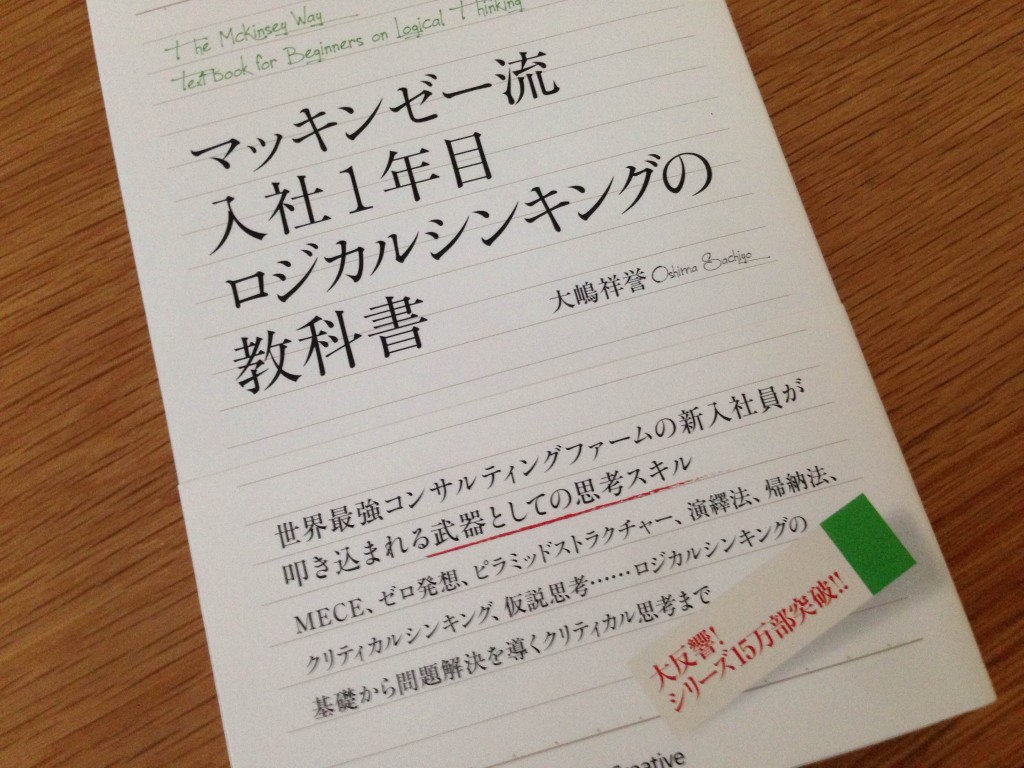 The Mckinsey Way
textbook for Beginners on Logical Thinking
マッキンゼー流
入社1年目
ロジカルシンキングの
教科書
大嶋祥誉 Oshima Sachiyo
世界最強コンサルティングファームの新入社員が
叩き込まれる武器としての思考スキル
MECE、ゼロ発想、ピラミッドストラクチャー、演繹法、帰納法、
クリティカルシンキング、仮説思考……ロジカルシンキングの
基礎から問題解決を導くクリティカル思考まで
大反響!
シリーズ15万部突破!!
Creative